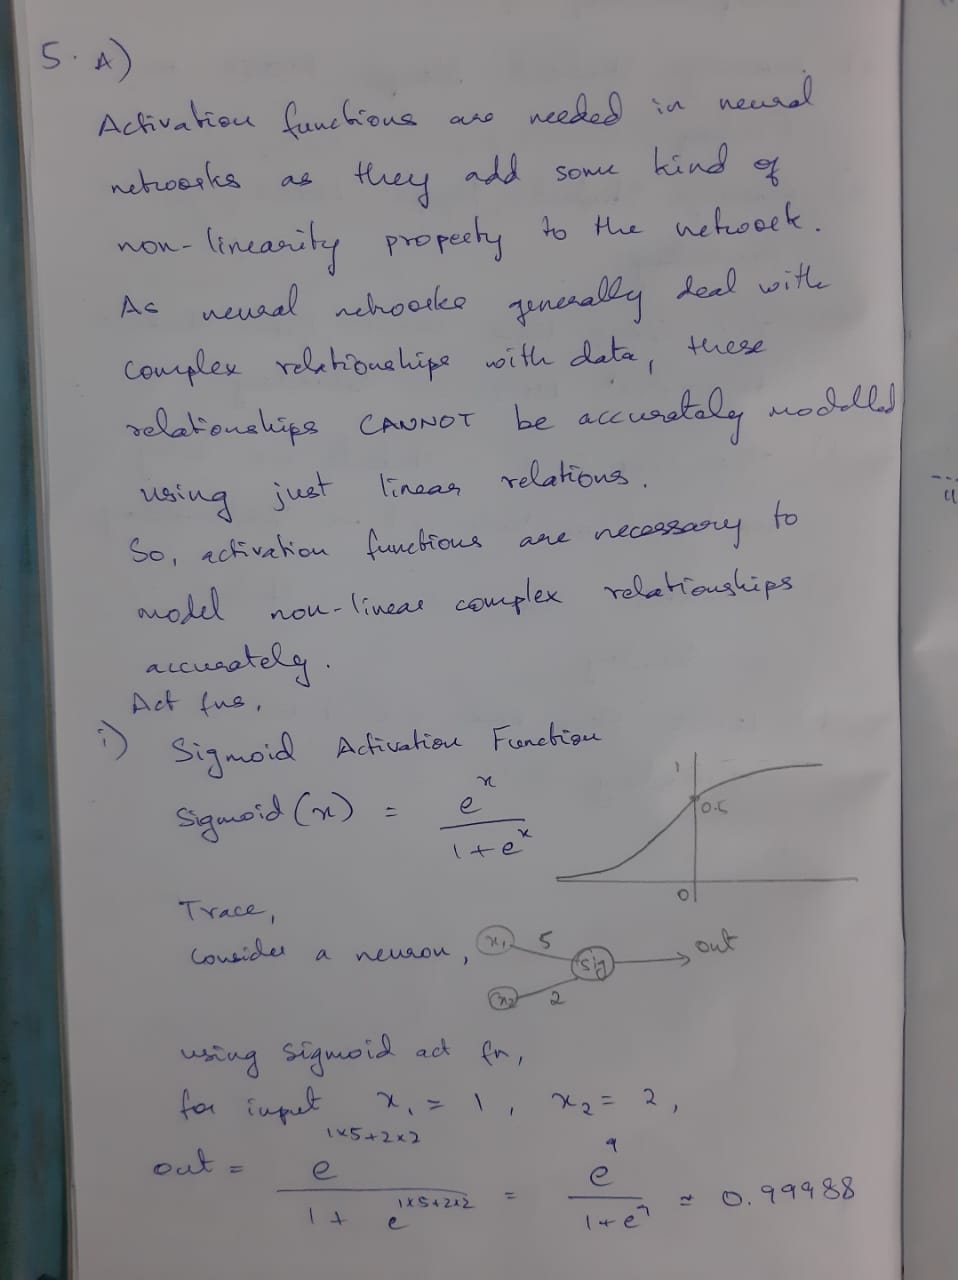 5. A)
Activation functions are needed in neural
networks as they add some kind of
non-linearity property to the network.
As neural networks generally deal with
complex relationships with data, these
relationships CANNOT be accurately modelled
using just linear relations.
So, activation functions are necessary to
model non-linear complex relationships
accurately.
Act fns,
i) Sigmoid Activation Function
Sigmoid (x) = e^x / (1 + e^x)
1
0.5
0
Trace,
Consider a neuron, x₁ 5 sig out
x₂ 2
using sigmoid act fn,
for input x₁ = 1, x₂ = 2,
out = e^(1×5+2×2) / (1 + e^(1×5+2×2)) = e^9 / (1 + e^9) ≈ 0.99988